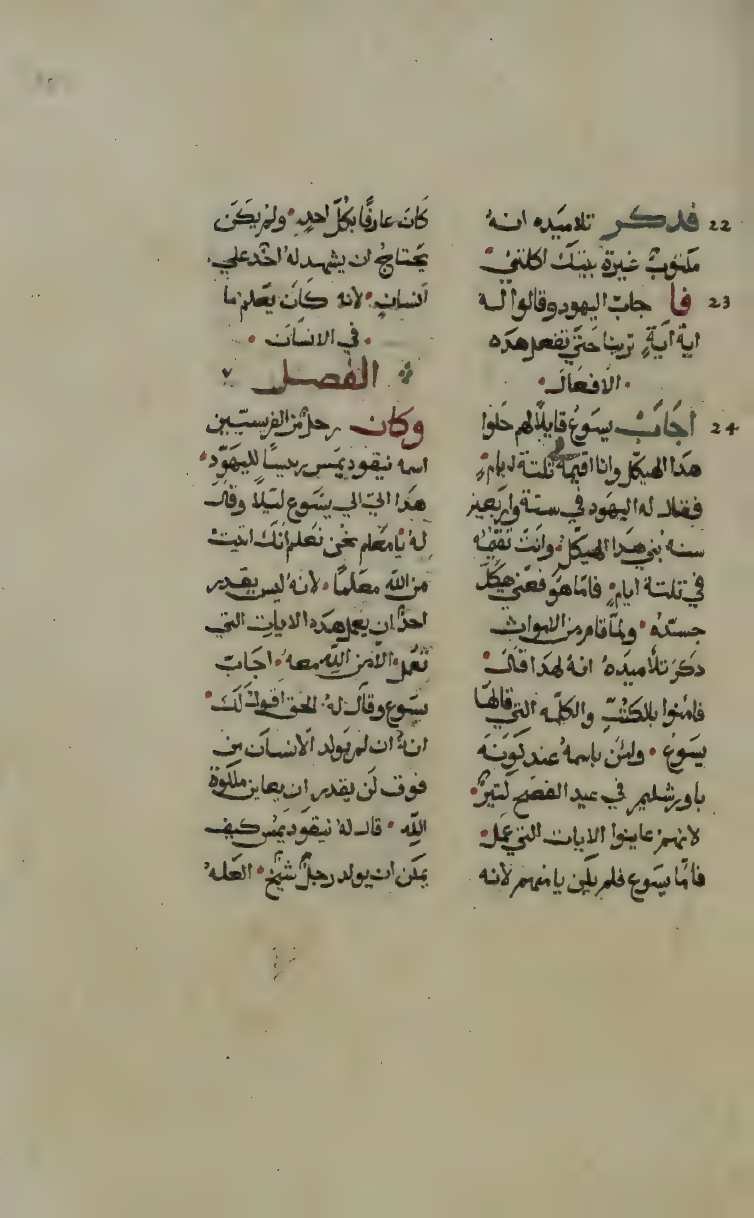 22 فدكر تلاميده انهُ
مكتوبٌ غيرة بيتك اكلتني
23 فا جاب اليهود وقالوا له
اية ايةٍ ترينا حتى تفعل هده
الافعال
24 اجَابَ يسوعُ قايلًا لهم حَلوا
هدا الهيكل وانا اقيمهُ في تلتة ايامٍ
فقال له اليهود في ستة واربعين
سنه بُني هدا الهيكل وانتَ تقيمه
في تلتة ايامٍ فامّا هو فعَني هيكل
جسدهُ ولمّا قام من الاموات
دكرَ تلاميدهُ انهُ لهدا قال
فامنوا بالكتب والكلمه التي قالها
يسوعُ ولمن باسمهُ عند كونَه
باورشليم في عيد الفصحِ كتيرٌ
لانهم عاينوا الايات التي عَمل
فامّا يسوع فلم يكن يامنهم لانه
كانَ عارفًا بكل احدٍ ولم يكن
يحتاجُ ان يشهد لهُ احدٌ علي
انسانٍ لانه كان يَعلم ما
في الانسان
الفصل ٧
وكان رجلٌ من الفريسيين
اسمه نيقوديمس رييسًا لليهود
هدا اتي الي يسوع ليلًا وقال
لهُ يا معَلم نحن نعلم انّك اتيت
من الله معَلمًا لانهُ ليس يقدر
احدٌ ان يعمل هده الايات التي
تعمل الّا من اللّه معهُ اجابَ
يسوع وقال لهُ الحق اقول لكَ
انهُ ان لم يولد الانسان من
فوق لَن يقدر ان يعاين ملكوة
اللّه قال لهُ نيقوديمس كيف
يمكن ان يولد رجلٌ شيخٌ العله